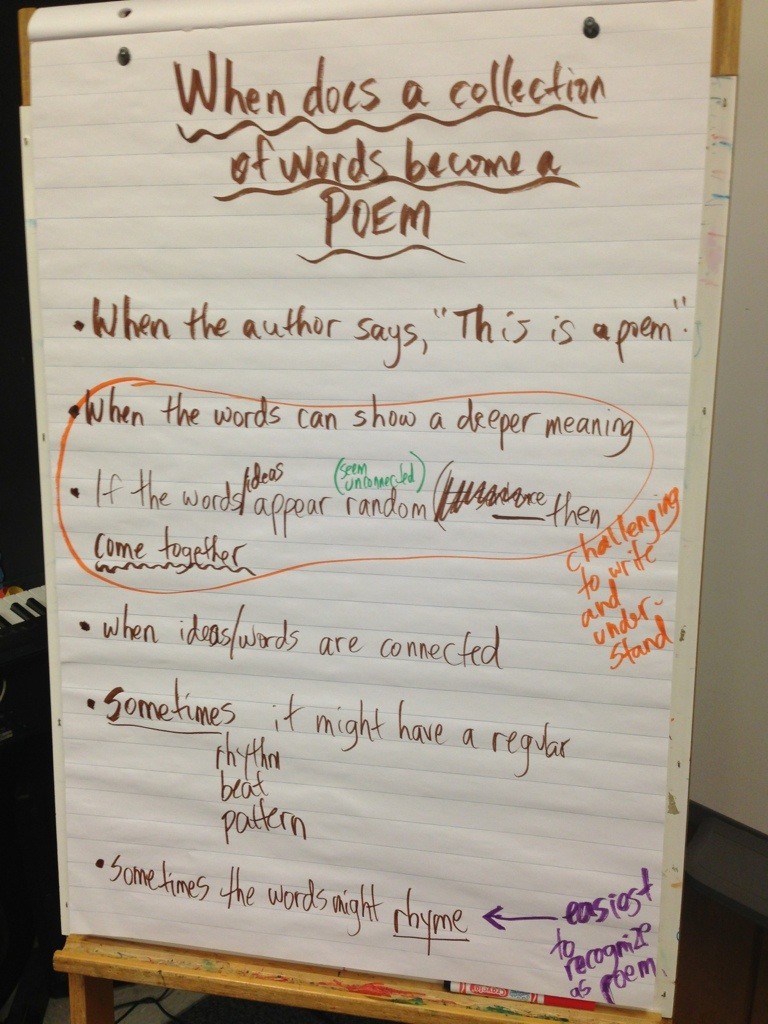 When does a collection
of words become a
POEM
• When the author says, "This is a poem".
• When the words can show a deeper meaning
• If the words/ideas appear random (seem unconnected) then
come together
challenging
to write
and
under-
stand
• when ideas/words are connected
• Sometimes it might have a regular
rhythm
beat
pattern
• Sometimes the words might rhyme ← easiest
to
recognize
as poem